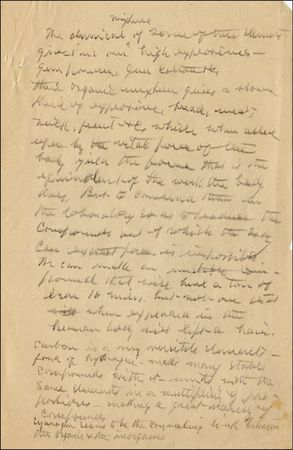 mixture
The chemical of some of these elements
gives us our high explosives —
Gunpowder, Gun cotton &c
this organic mixture gives a slower
kind of explosive, bread, meat,
milk, fruit &c, which when acted
upon by the vital force of the
body yields the power that is the
equivalent of the work the body
does, But to condense them in
the laboratory so as to produce the
compounds out of which the body
can extract force is impossible.
We can make an unstable com-
pound that will have a ton of
iron 10 miles, but not one that
when expended in the
human body will lift a hair.
Carbon is a very versitile element —
fond of hydrogen — makes many stable
compounds with it — unites with the
same elements in a multiplicity of pro-
portions — making a great variety of
compounds
Hydrogen seems to be the connecting link between
the organic & the inorganic